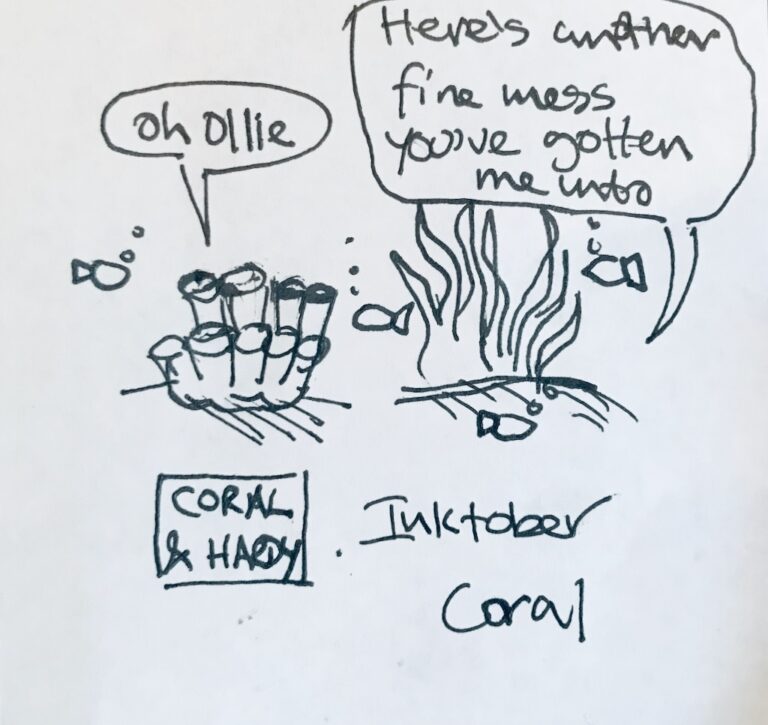 Here's another
fine mess
you've gotten
me into
oh Ollie
CORAL
& HARDY
Inktober
Coral